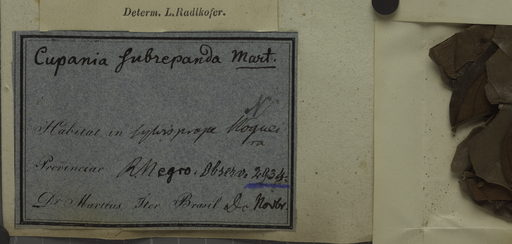 Determ. L. Radlkofer.
Cupania subrepanda Mart.
Habitat in sylvis prope Noguei
ra
Provinciae R Negro. Observ. 2834.
Dr Martius Iter Brasil Dc Novbr.